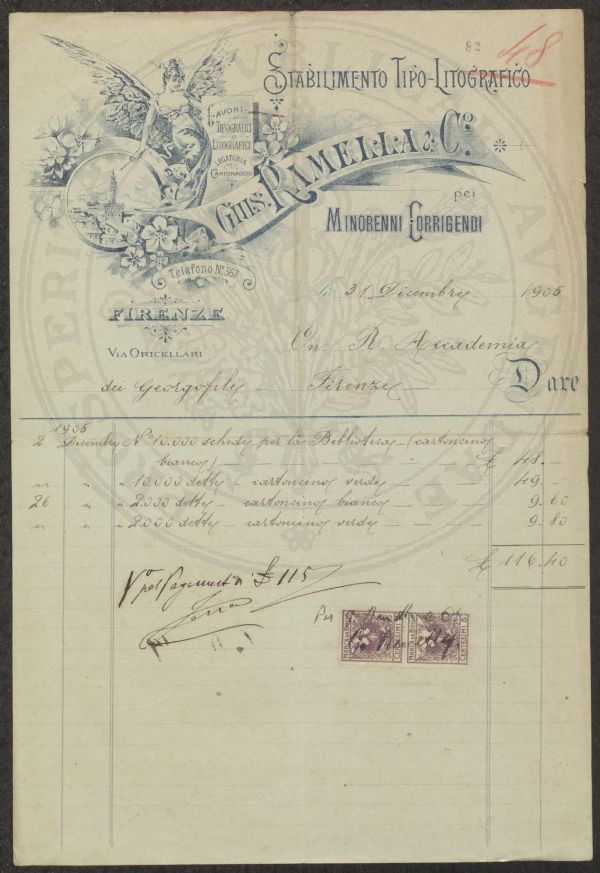 82
48
Stabilimento Tipo-Litografico
Lavori
Tipografici
Litografici
Legatoria
Cartonaggio
Gius. Ramella & Co.
pei
Minorenni Corrigendi
Telefono No. 367
Firenze
Via Oricellari
li 31 Dicembre 1905
On. R. Accademia
dei Georgofili Firenze Dare
1905
2 Dicembre No. 10.000 schede per la Biblioteca (cartoncino
bianco) — £ 48.—
" " " 10.000 dette — cartoncino verde — 49.—
26 " " 2.000 dette — cartoncino bianco — 9.60
" " " 2.000 dette — cartoncino verde — 9.80
£ 116.40
Vo pel Pagamento di £ 115
Per G. Ramella & Co.
Marca da Bollo
Centesimi 5
Marca da Bollo
Centesimi 5